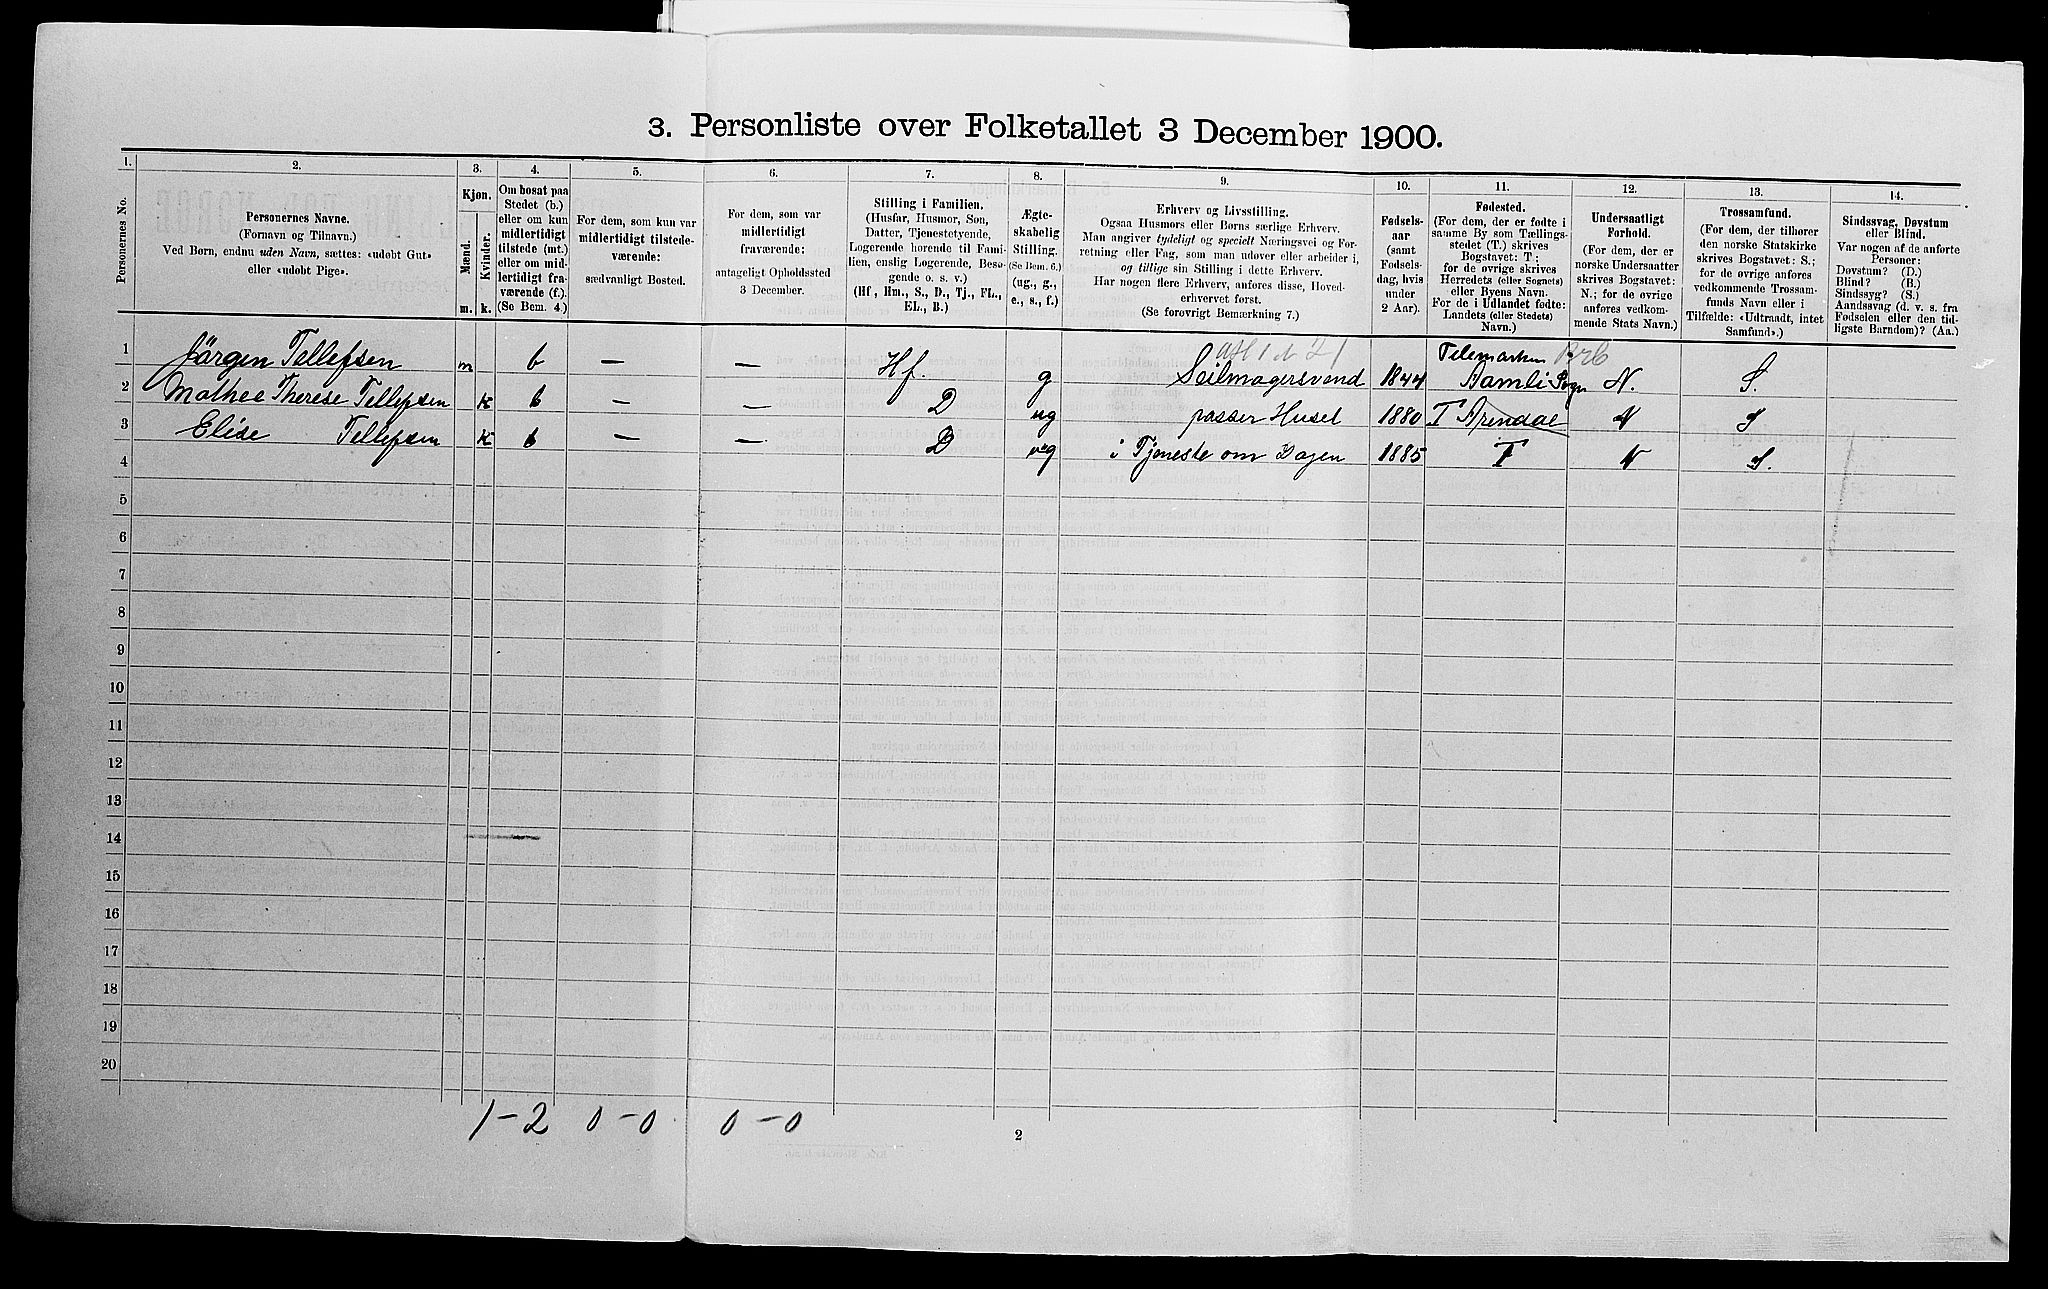 3. Personliste over Folketallet 3 December 1900.
1. 2. 3. 4. 5. 6. 7. 8. 9. 10. 11. 12. 13. 14.
Personernes No.
Personernes Navne.
(Fornavn og Tilnavn.)
Ved Børn, endnu uden Navn, sættes: «udøbt Gut»
eller «udøbt Pige».
Kjøn.
Mænd.
Kvinder.
m. k.
Om bosat paa
Stedet (b.)
eller om kun
midlertidigt
tilstede (mt.)
eller om mid-
lertidigt fra-
værende (f.).
(Se Bem. 4.)
For dem, som kun var
midlertidigt tilstede-
værende:
sædvanligt Bosted.
For dem, som var
midlertidigt
fraværende:
antageligt Opholdssted
3 December.
Stilling i Familien.
(Husfar, Husmor, Søn,
Datter, Tjenestetyende,
Logerende hørende til Fami-
lien, enslig Logerende, Besø-
gende o. s. v.)
(Hf, Hm., S., D., Tj., FL.,
EL., B.)
Ægte-
skabelig
Stilling.
(Se Bem. 6.)
(ug., g.,
e., s., f.)
Erhverv og Livsstilling.
Ogsaa Husmors eller Børns særlige Erhverv.
Man angiver tydeligt og specielt Næringsvei og For-
retning eller Fag, som man udøver eller arbeider i,
og tillige sin Stilling i dette Erhverv.
Har nogen flere Erhverv, anføres disse, Hoved-
erhvervet først.
(Se forøvrigt Bemærkning 7.)
Fødsels-
aar
(samt
Fødsels-
dag, hvis
under
2 Aar).
Fødested.
(For dem, der er fødte i
samme By som Tællings-
stedet (T.) skrives
Bogstavet: T;
for de øvrige skrives
Herredets (eller Sognets)
eller Byens Navn.
For de i Udlandet fødte:
Landets (eller Stedets)
Navn.)
Undersaatligt
Forhold.
(For dem, der er
norske Undersaatter
skrives Bogstavet:
N.; for de øvrige
anføres vedkom-
mende Stats Navn.)
Trossamfund.
(For dem, der tilhører
den norske Statskirke
skrives Bogstavet: S.;
for de øvrige anføres
vedkommende Trossam-
funds Navn eller i
Tilfælde: «Udtraadt, intet
Samfund».)
Sindssvag, Døvstum
eller Blind.
Var nogen af de anførte
Personer:
Døvstum? (D.)
Blind? (B.)
Sindssyg? (S.)
Aandssvag (d. v. s. fra
Fødselen eller den tid-
ligste Barndom)? (Aa.)
1 Jörgen Tellefsen m b — — Hf. g Seilmagersvend 1844 Telemarken Aamli Sogn N. S.
2 Mathee Therese Tellefsen K b — — D ug passer Huset 1880 T Arendal N S
3 Elise Tellefsen K b — — D ug i Tjeneste om Dagen 1885 T N S.
4
5
6
7
8
9
10
11
12
13
14
15
16
17
18
19
20
1–2 0–0 0–0
2